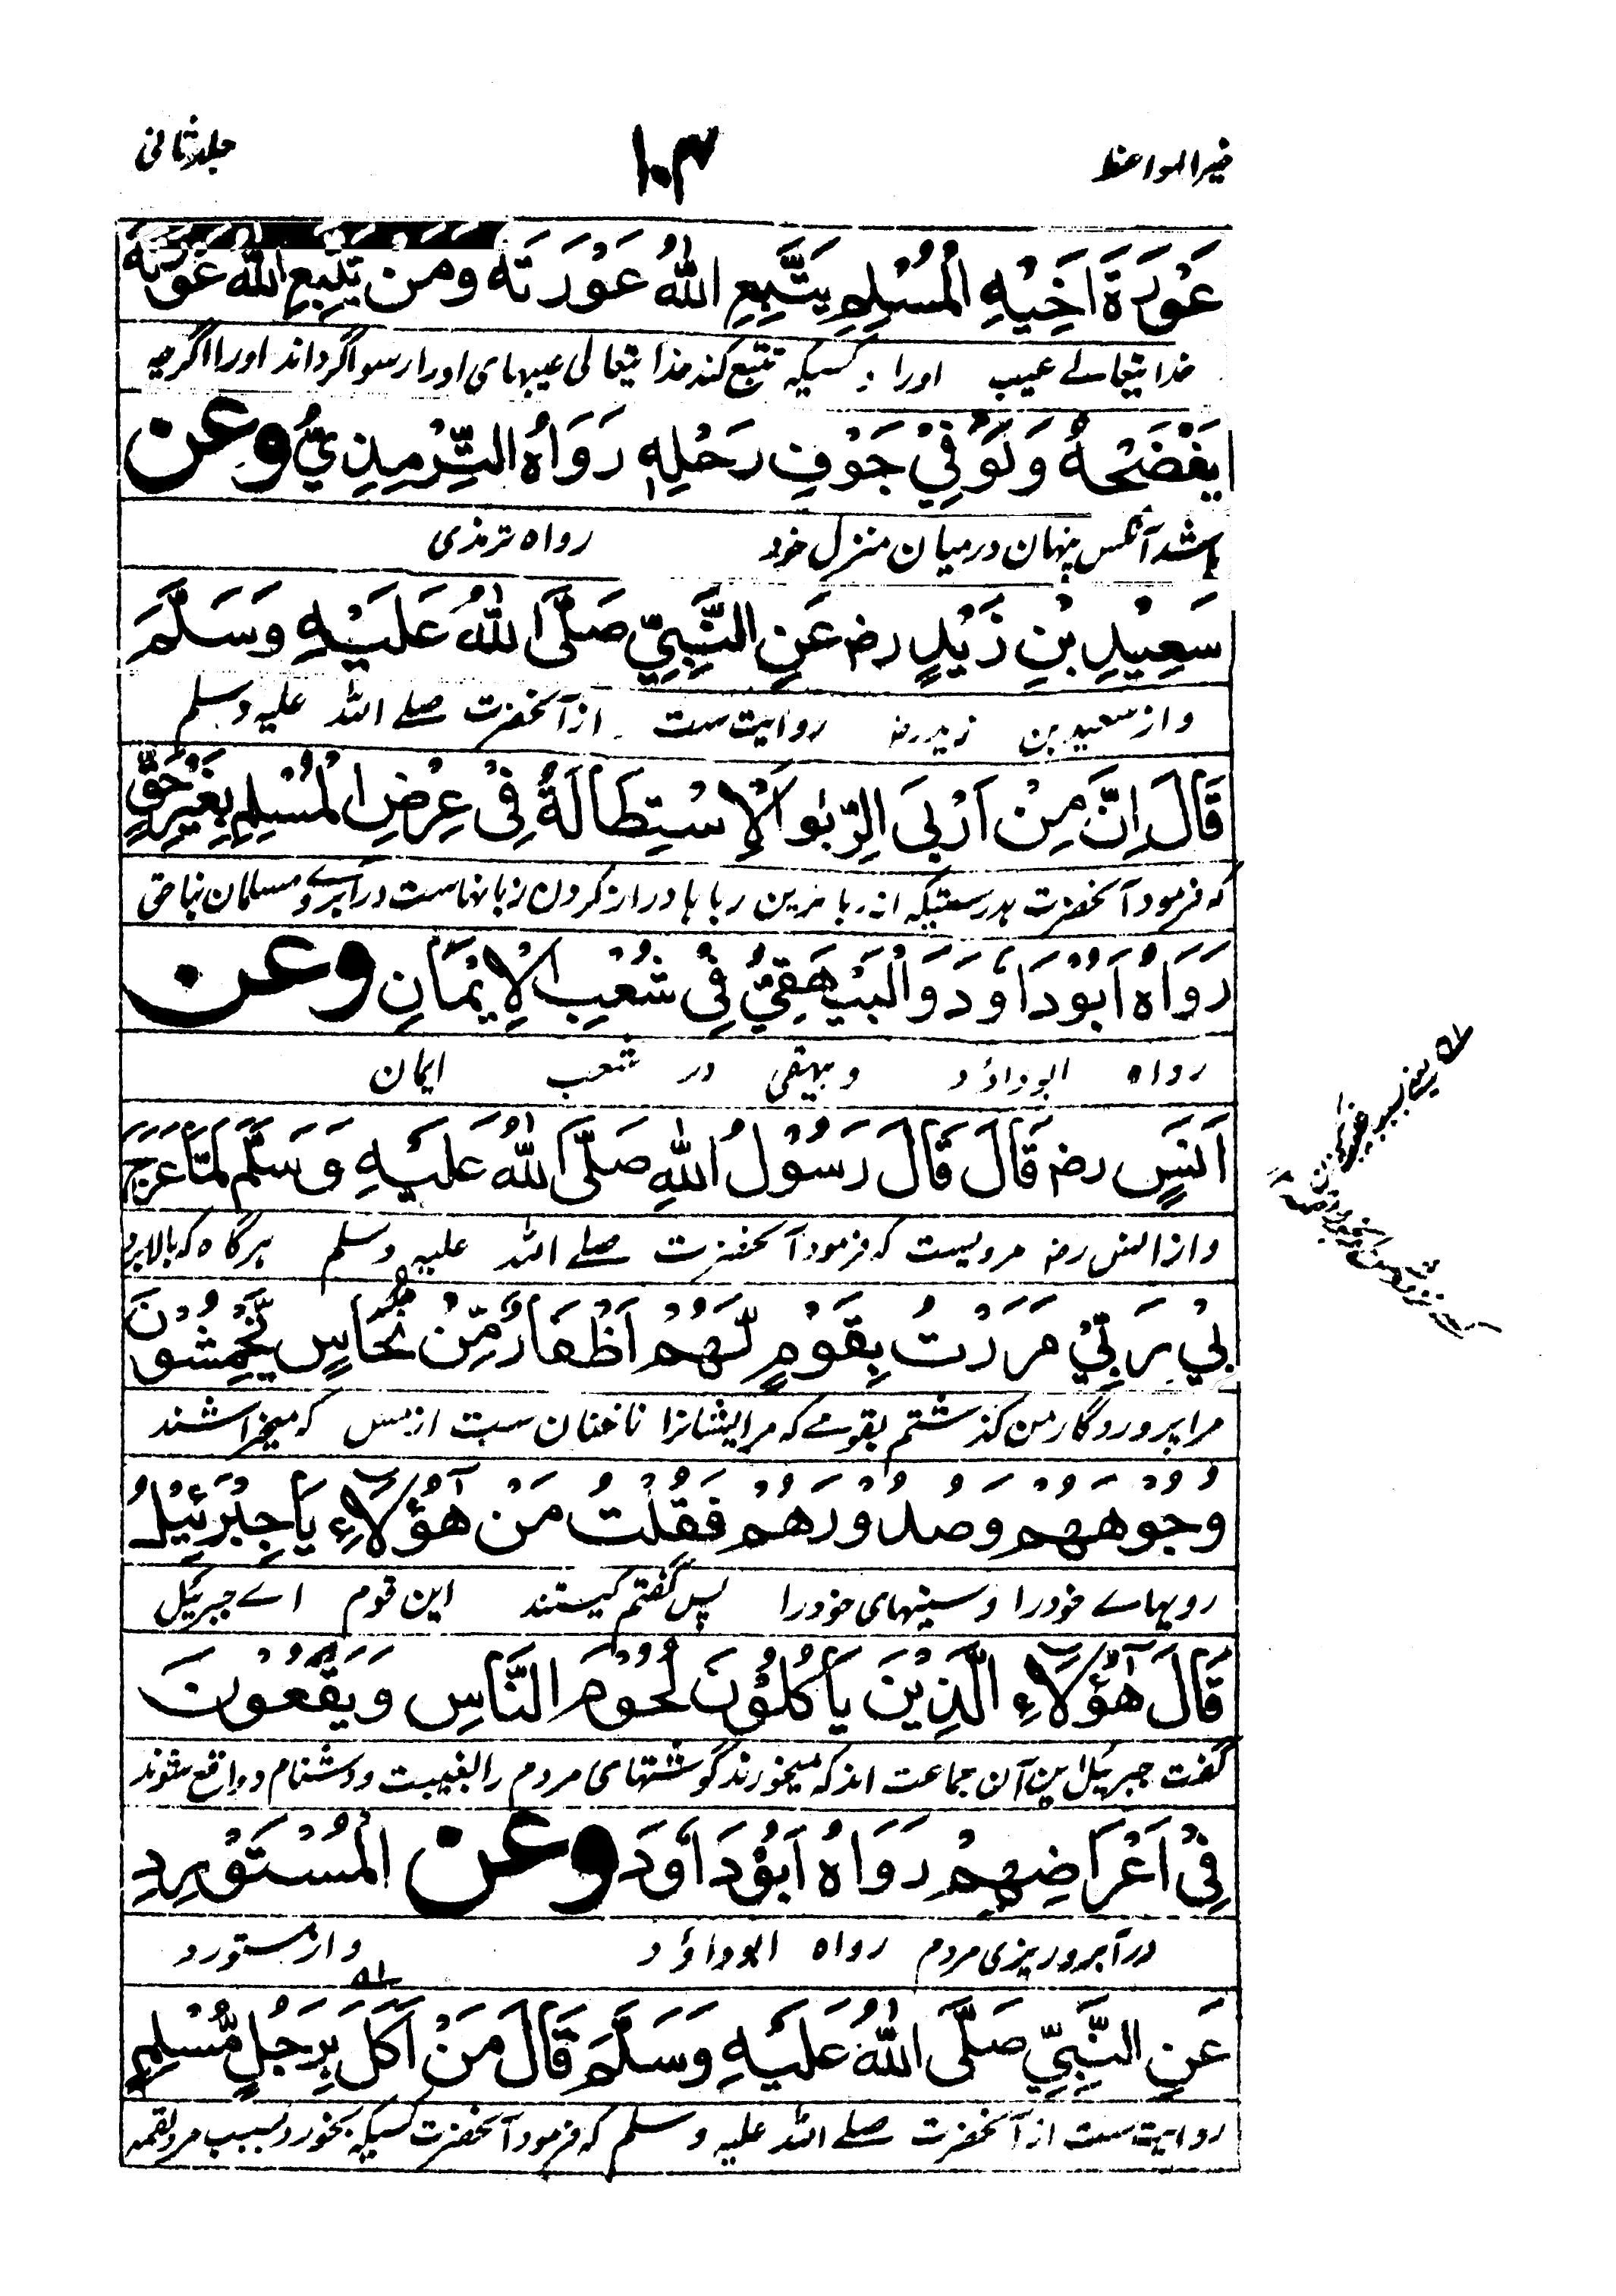 خیر المواعظ
۱۰۳
جلد ثانی
عَوْرَةَ اَخِيْهِ الْمُسْلِمِ يَتَّبِعِ اللّٰهُ عَوْرَتَهٗ وَمَنْ يَتَّبِعِ اللّٰهُ عَوْرَتَهٗ
خدایتعالے عیب اورا و کسیکہ تتبع کند خدایتعالی عیبہای اورا رسوا گرداند اورا اگرچہ
يَفْضَحْهُ وَلَوْ فِيْ جَوْفِ رَحْلِهٖ رَوَاهُ التِّرْمِذِيُّ وعن
باشد آنکس پنہان درمیان منزل خود رواہ ترمذی
سَعِيْدِ بْنِ زَيْدٍ رض عَنِ النَّبِيِّ صَلَّى اللّٰهُ عَلَيْهِ وَسَلَّمَ
و از سعید بن زید رض روایت ست از آنحضرت صلے اللہ علیہ وسلم
قَالَ اِنَّ مِنْ اَرْبَى الرِّبٰوا الْاِسْتِطَالَةُ فِيْ عِرْضِ الْمُسْلِمِ بِغَيْرِ حَقٍّ
کہ فرمود آنحضرت بدرستیکہ از رباترین رباہا دراز کردن زبانہاست در آبروے مسلمان بناحق
رَوَاهُ اَبُوْدَاوٗدَ وَالْبَيْهَقِيُّ فِيْ شُعَبِ الْاِيْمَانِ وعن
رواہ ابوداؤد و بیہقی در شعب ایمان
اَنَسٍ رض قَالَ قَالَ رَسُوْلُ اللّٰهِ صَلَّى اللّٰهُ عَلَيْهِ وَسَلَّمَ لَمَّا عَرَجَ
و از انس رض مرویست کہ فرمود آنحضرت صلے اللہ علیہ وسلم ہرگاہ کہ بالا برد
بِيْ رَبِّيْ مَرَرْتُ بِقَوْمٍ لَّهُمْ اَظْفَارٌ مِّنْ نُحَاسٍ يَّخْمِشُوْنَ
مرا پروردگار من گذشتم بقومے کہ مرایشانرا ناخنان ست از مس کہ میخراشند
وُجُوْهَهُمْ وَصُدُوْرَهُمْ فَقُلْتُ مَنْ هٰٓؤُلَاءِ يَا جِبْرَئِيْلُ
رویہاے خودرا و سینہای خودرا پس گفتم کیستند این قوم اے جبرئیل
قَالَ هٰٓؤُلَاءِ الَّذِيْنَ يَأْكُلُوْنَ لُحُوْمَ النَّاسِ وَيَقَعُوْنَ
گفت جبرئیل این آن جماعت اند کہ میخورند گوشتہای مردم را بغیبت و دشنام و واقع شوند
فِيْ اَعْرَاضِهِمْ رَوَاهُ اَبُوْدَاوٗدَ وعن الْمُسْتَوْرِدِ
در آبروریزی مردم رواہ ابوداؤد و از مستورد
عَنِ النَّبِيِّ صَلَّى اللّٰهُ عَلَيْهِ وَسَلَّمَ قَالَ مَنْ اَكَلَ بِرَجُلٍ مُّسْلِمٍ
روایت ست از آنحضرت صلے اللہ علیہ وسلم کہ فرمود آنحضرت کسیکہ بخورد بسبب مرد لقمہ